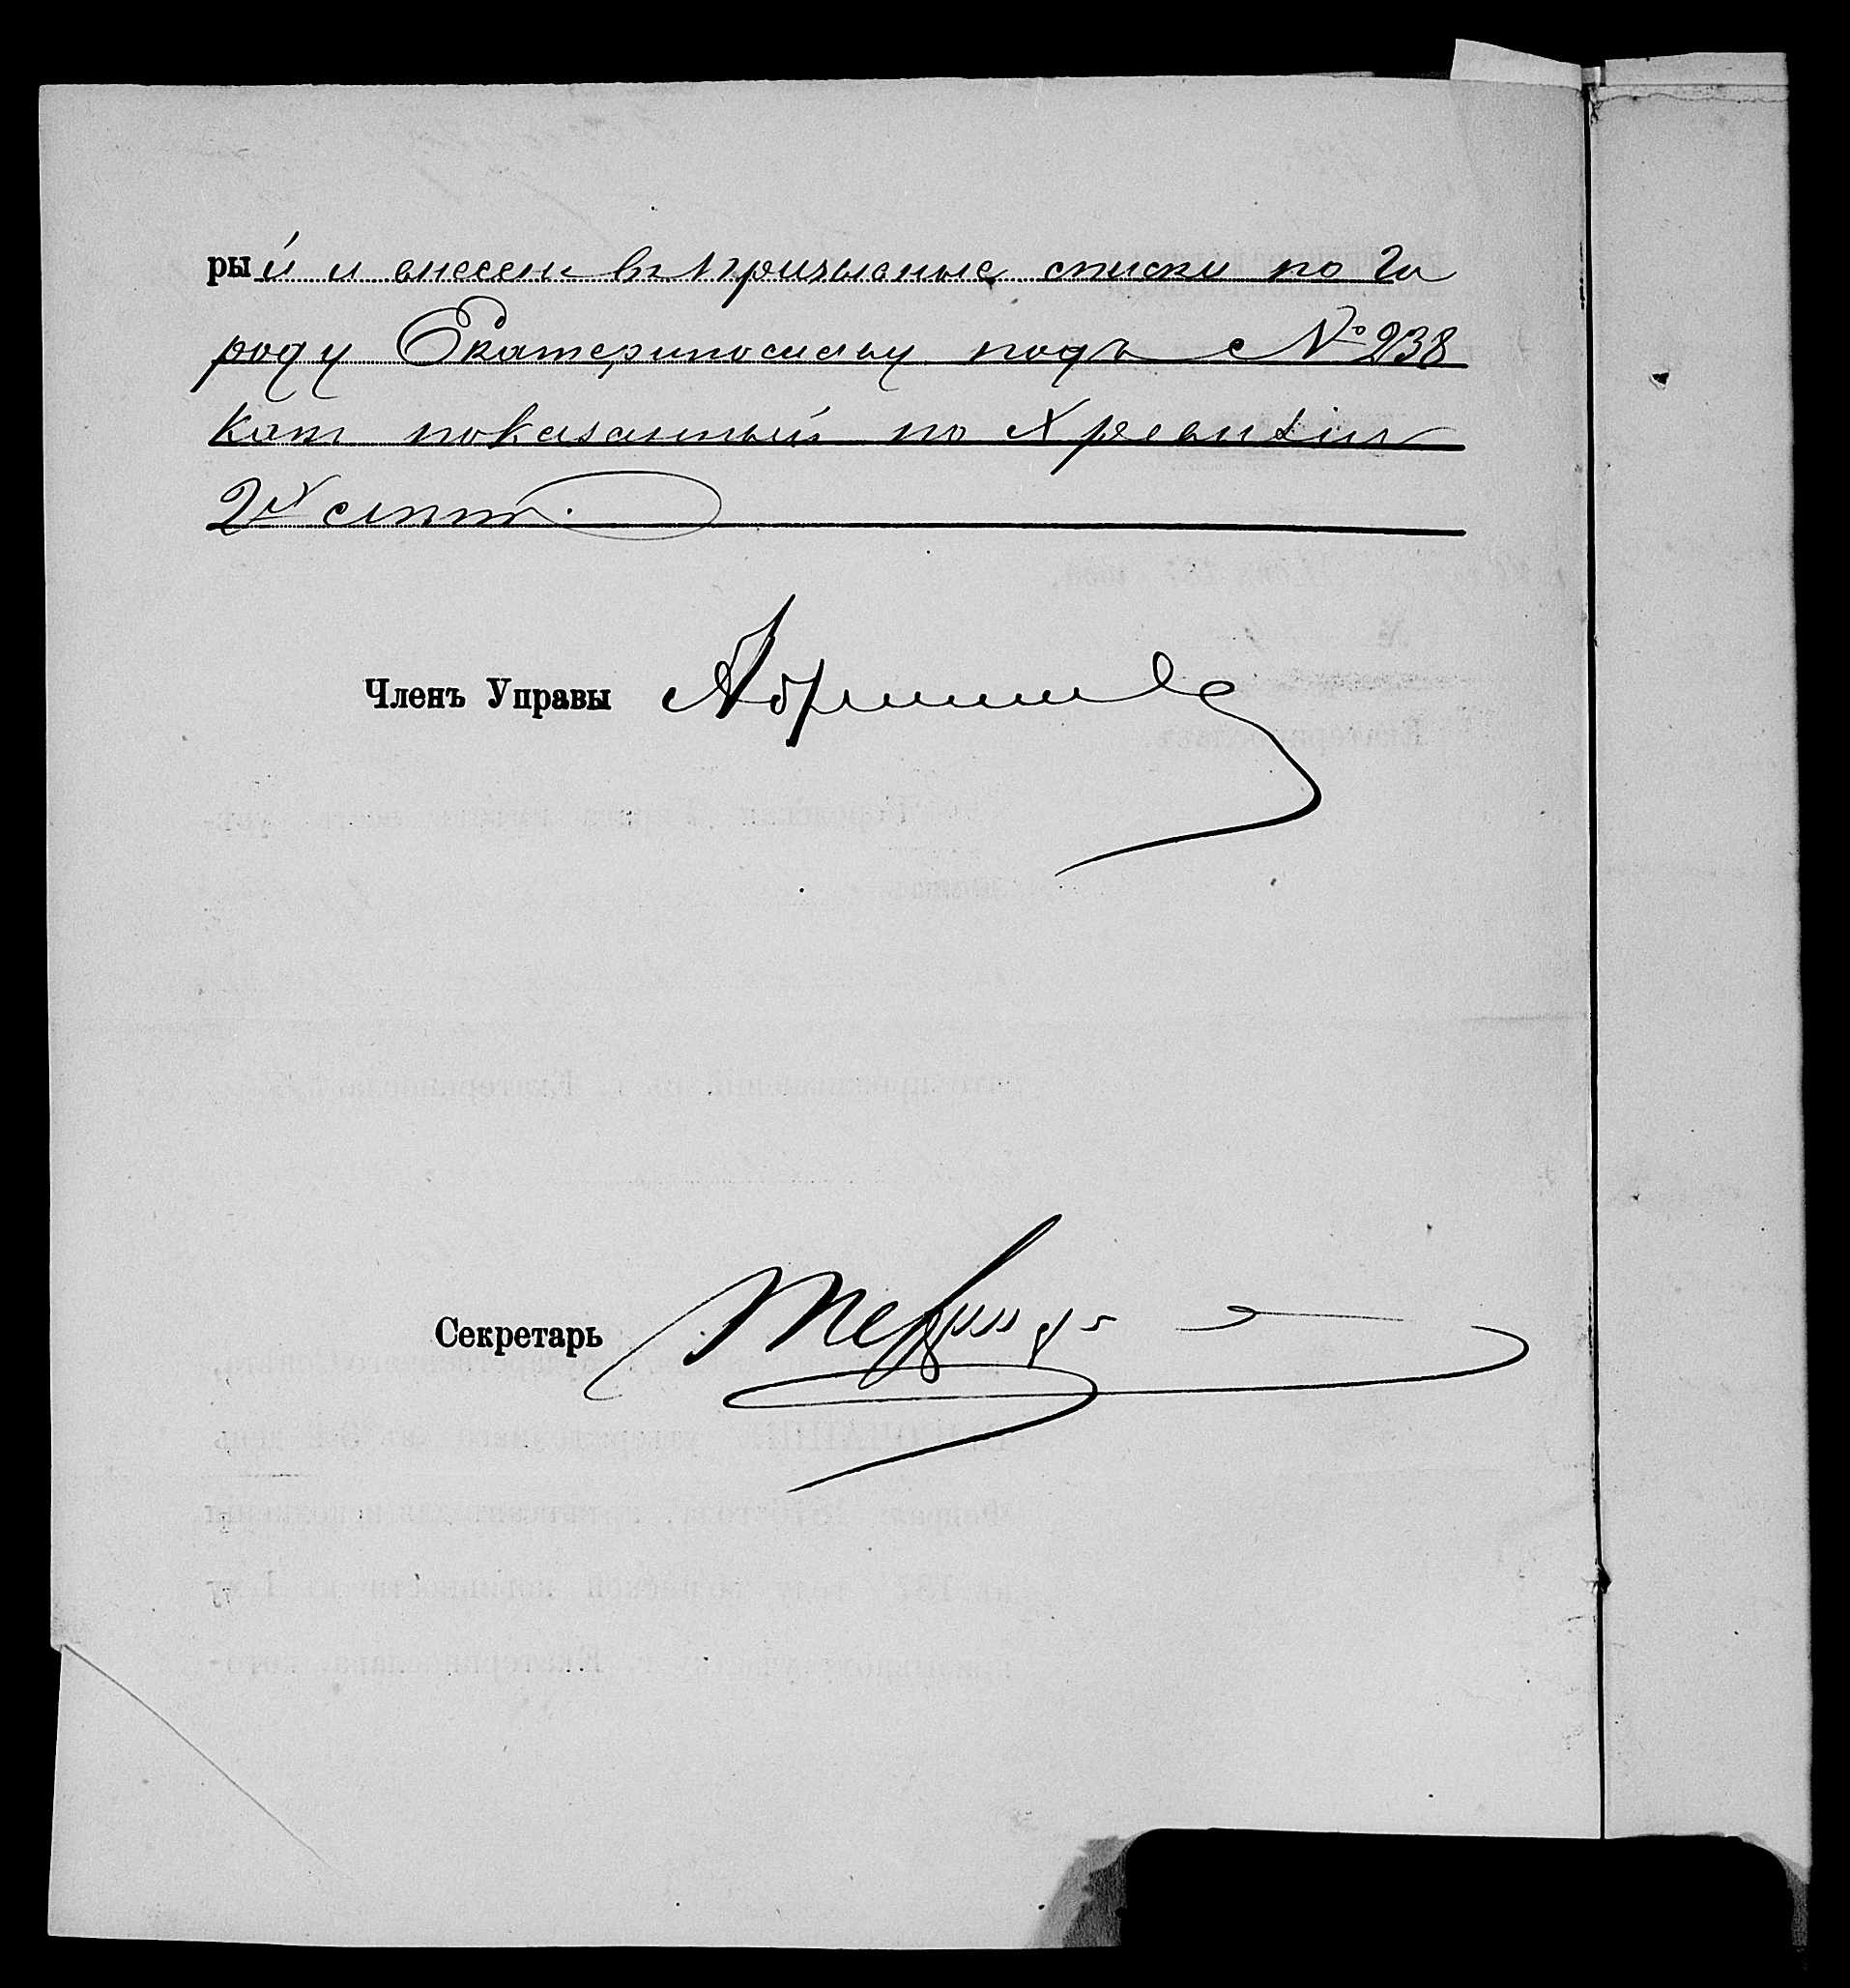 рый и внесенъ въ призывные списки по го
роду Екатеринославу подъ № 238
какъ показанный по X ревизіи
2хъ лѣтъ.
Членъ Управы
Секретарь